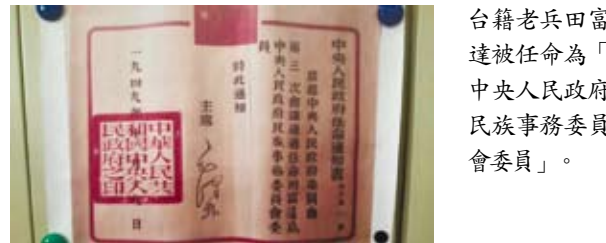 中央人民政府任命通知書
茲經中央人民政府委員會
第三次會議通過任命田富達為
中央人民政府民族事務委員會委
員
特此通知
主席
一九四九年
日
中華人民共
和國中央人
民政府之印
台籍老兵田富
達被任命為「
中央人民政府
民族事務委員
會委員」。